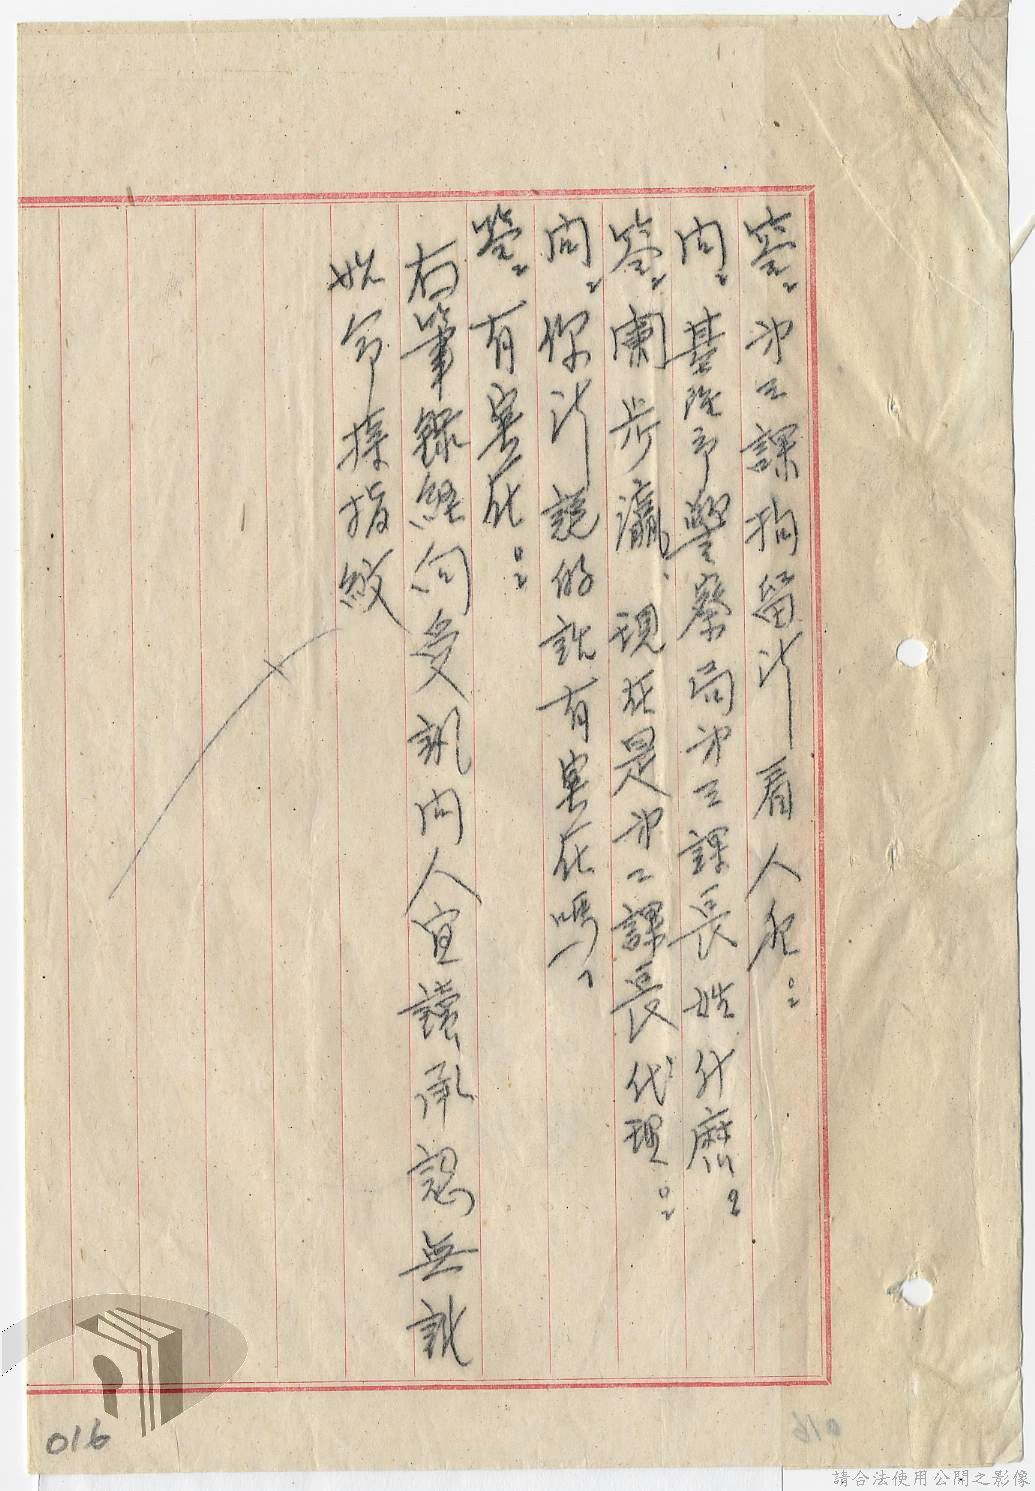 答：第三課拘留所看人犯。
問：基隆市警察局第三課長姓什麽？
答：蘭步瀛，現在是第二課長代理。
問：你所說的話有實在嗎？
答：有實在。
右筆錄經向受訊問人宣讀承認無訛
始命捺指紋
016
請合法使用公開之影像